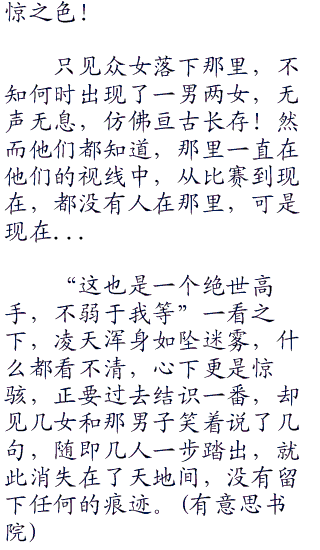 惊之色！
只见众女落下那里，不
知何时出现了一男两女，无
声无息，仿佛亘古长存！然
而他们都知道，那里一直在
他们的视线中，从比赛到现
在，都没有人在那里，可是
现在...
“这也是一个绝世高
手，不弱于我等”一看之
下，凌天浑身如坠迷雾，什
么都看不清，心下更是惊
骇，正要过去结识一番，却
见几女和那男子笑着说了几
句，随即几人一步踏出，就
此消失在了天地间，没有留
下任何的痕迹。(有意思书
院)